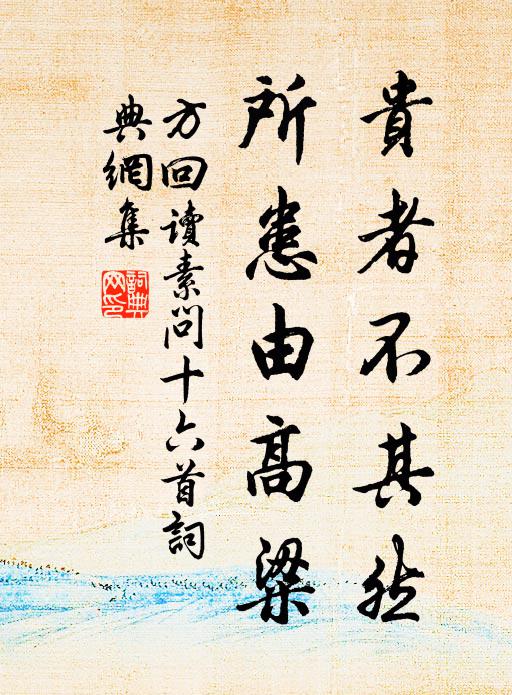 貴者不其然
所患由高梁
方回讀素問十六首詞
典網集
詞典網印